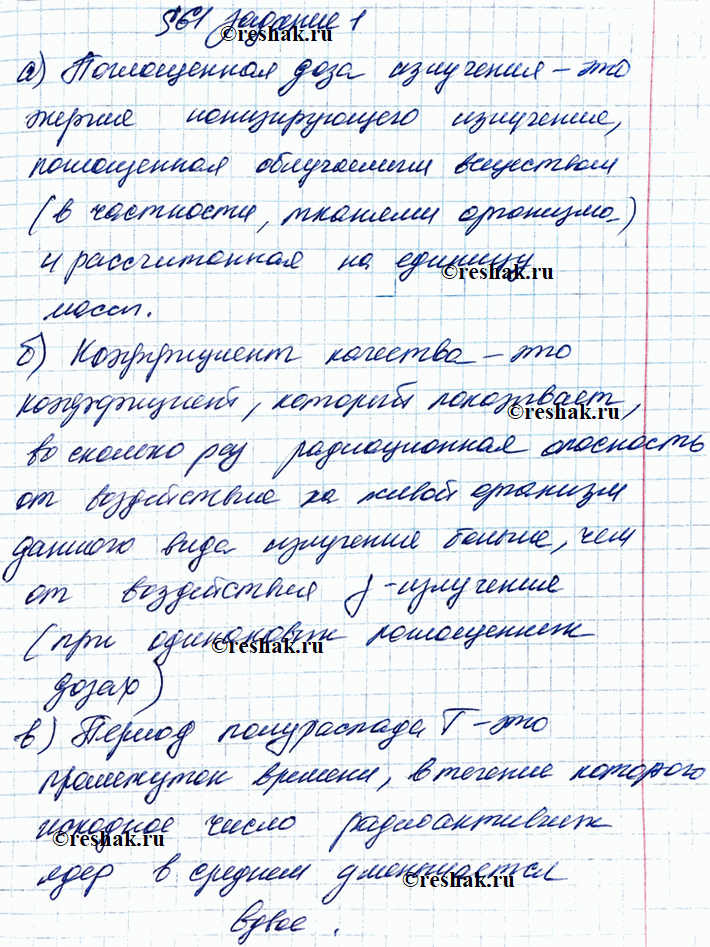 §61 Задание 1
©reshak.ru
а) Поглощенная доза излучения – это
энергия ионизирующего излучения,
поглощенная облучаемым веществом
(в частности, тканями организма)
и рассчитанная на единицу
©reshak.ru
массы.
б) Коэффициент качества – это
коэффициент, который показывает,
©reshak.ru
во сколько раз радиационная опасность
от воздействия на живой организм
данного вида излучения больше, чем
от воздействия γ-излучения
(при одинаковых поглощенных
©reshak.ru
дозах)
в) Период полураспада T – это
промежуток времени, в течение которого
исходное число радиоактивных
©reshak.ru
ядер в среднем уменьшается
©reshak.ru
вдвое.